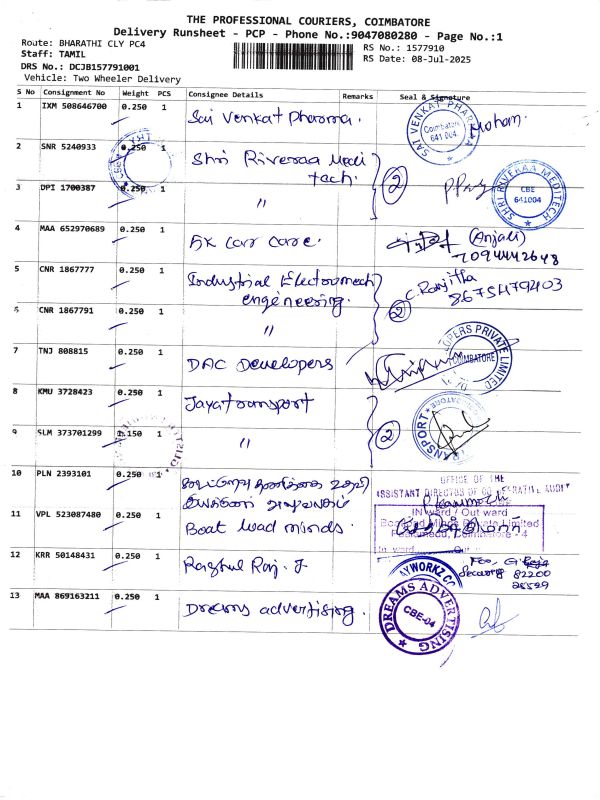 THE PROFESSIONAL COURIERS, COIMBATORE
Delivery Runsheet - PCP - Phone No.:9047080280 - Page No.:1
Route: BHARATHI CLY PC4
RS No.: 1577910
Staff: TAMIL
RS Date: 08-Jul-2025
DRS No.: DCJB157791001
Vehicle: Two Wheeler Delivery
S No Consignment No Weight PCS Consignee Details Remarks Seal & Signature
1 IXM 508646700 0.250 1 Sai Venkat Pharma. SAI VENKAT PHARMA Coimbatore 641 004. Mohan
2 SNR 5240933 0.250 1 Shri Riveraa Medi
tech. 2
SHRI RIVERAA MEDITECH CBE 641004
3 DPI 1700387 0.250 1 "
4 MAA 652970689 0.250 1 AK Car Care. (Anjali)
7094442648
5 CNR 1867777 0.250 1 Industrial Electromech
engineering. 2
C. Ranjitha
8675479403
6 CNR 1867791 0.250 1 "
7 TNJ 808815 0.250 1 DAC Developers
OPERS PRIVATE LIMITED COIMBATORE
8 KMU 3728423 0.250 1 Jaya transport 2
TRANSPORT
9 SLM 373701299 0.150 1 "
10 PLN 2393101 0.250 1
OFFICE OF THE
ASSISTANT DIRECTOR OF CO-OPERATIVE AUDIT
11 VPL 523087480 0.250 1 Boat load minds.
IN ward / Out ward
Private Limited
Coimbatore - 4
12 KRR 50148431 0.250 1 Raghul Raj. J
AYWORKZ CO
Security 82200
13 MAA 869163211 0.250 1 Dreams advertising.
DREAMS ADVERTISING CBE-04